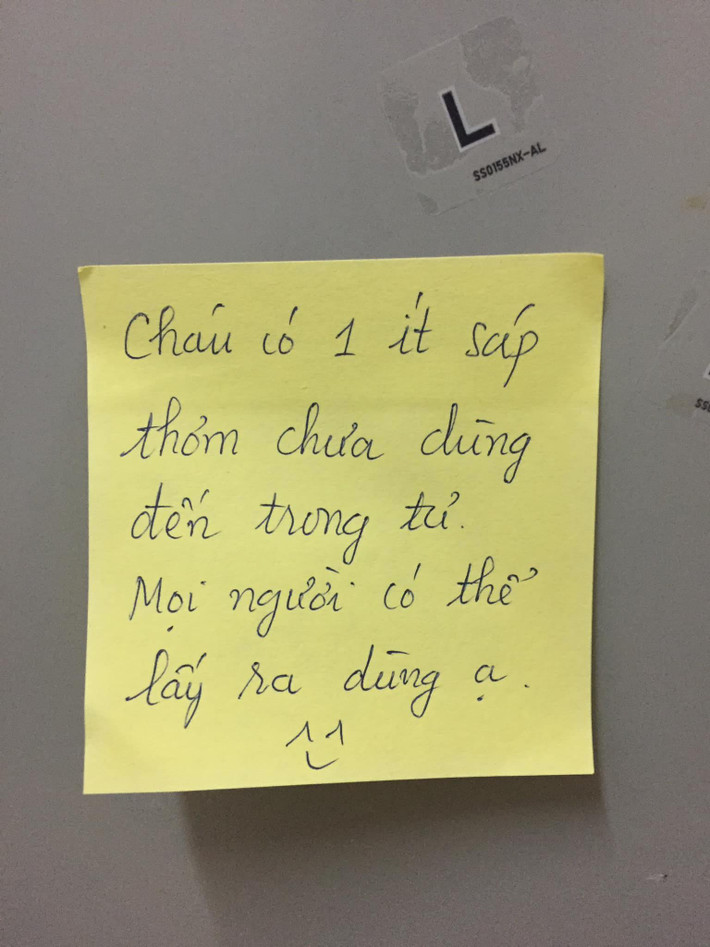 L
SS0155NX-AL
Cháu có 1 ít sáp
thơm chưa dùng
đến trong tủ.
Mọi người có thể
lấy ra dùng ạ.